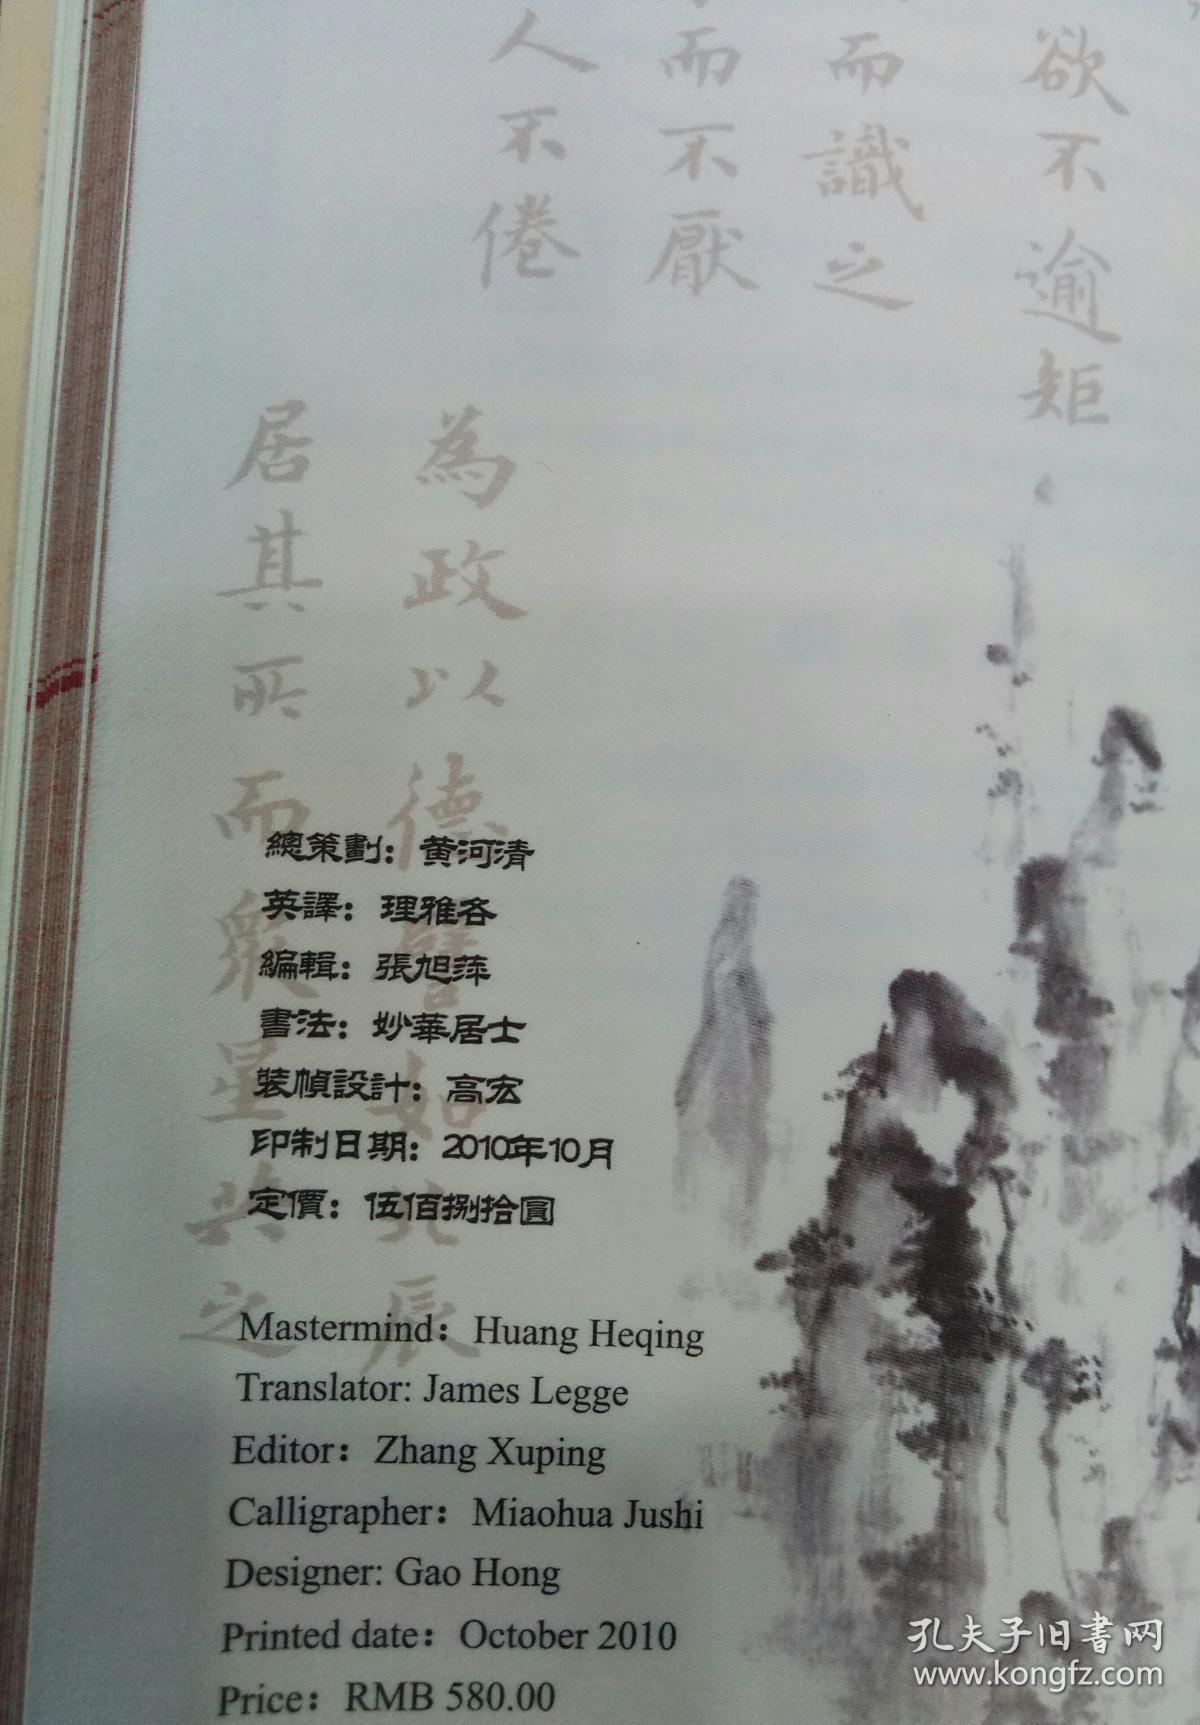 欲不逾矩
而識之
而不厭
人不倦
為政以德譬如北辰
居其所而眾星共之
總策劃：黄河清
英譯：理雅各
編輯：張旭萍
書法：妙華居士
裝幀設計：高宏
印制日期：2010年10月
定價：伍佰捌拾圓
Mastermind：Huang Heqing
Translator: James Legge
Editor：Zhang Xuping
Calligrapher：Miaohua Jushi
Designer: Gao Hong
Printed date：October 2010
Price：RMB 580.00
孔夫子旧書网
www.kongfz.com